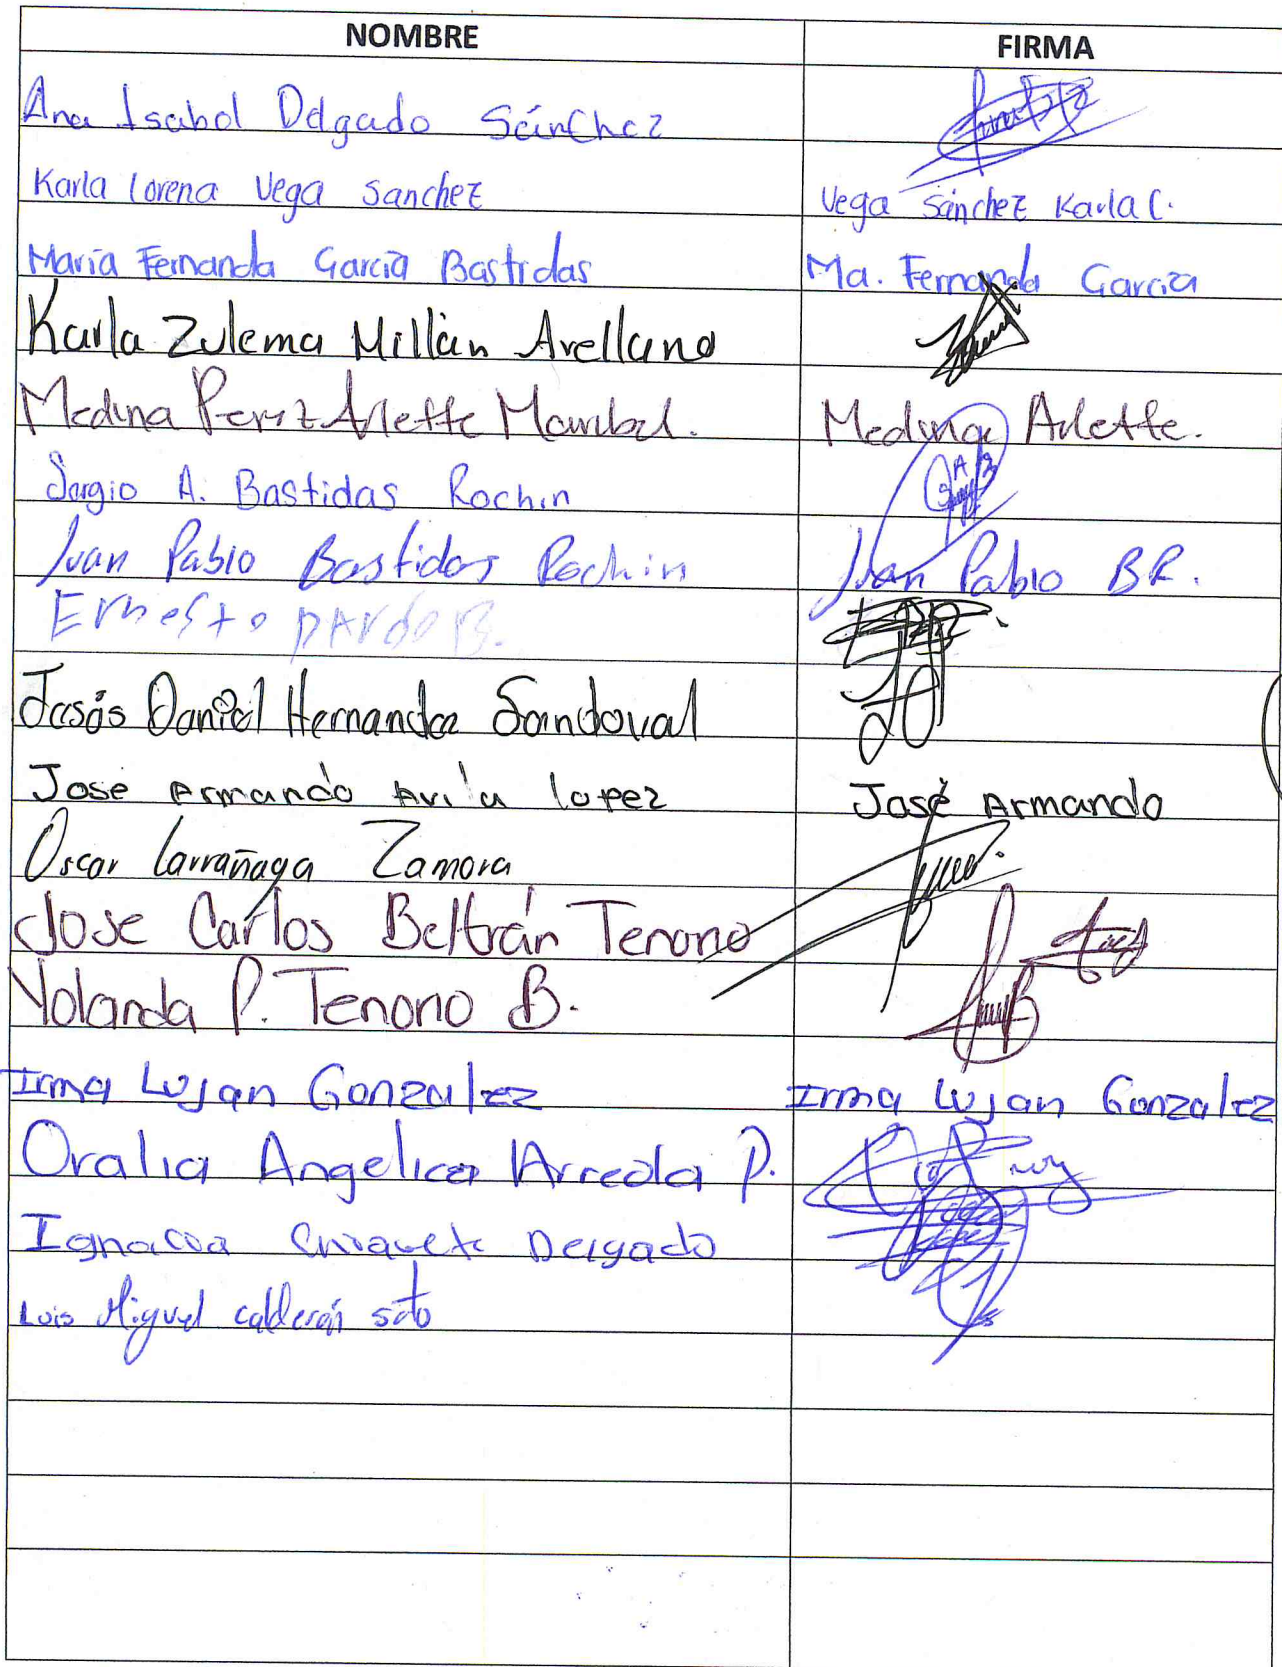 NOMBRE FIRMA
Ana Isabel Delgado Sánchez
Karla Lorena Vega Sanchez Vega Sánchez Karla L.
María Fernanda García Bastidas Ma. Fernanda García
Karla Zulema Millán Avellano
Medina Perez Arlette Maribel. Medina Arlette.
Sergio A. Bastidas Rochin
Juan Pablo Bastidas Rochin Juan Pablo BR.
Ernesto pardo B.
Jesús Daniel Hernandez Sandoval
José Armando Avila lopez José Armando
Oscar Larrañaga Zamora
Jose Carlos Beltrán Tenorio
Yolanda P. Tenorio B.
Irma Lujan Gonzalez Irma Lujan Gonzalez
Oralia Angelica Arreola P.
Delgado
Luis Miguel calderón soto